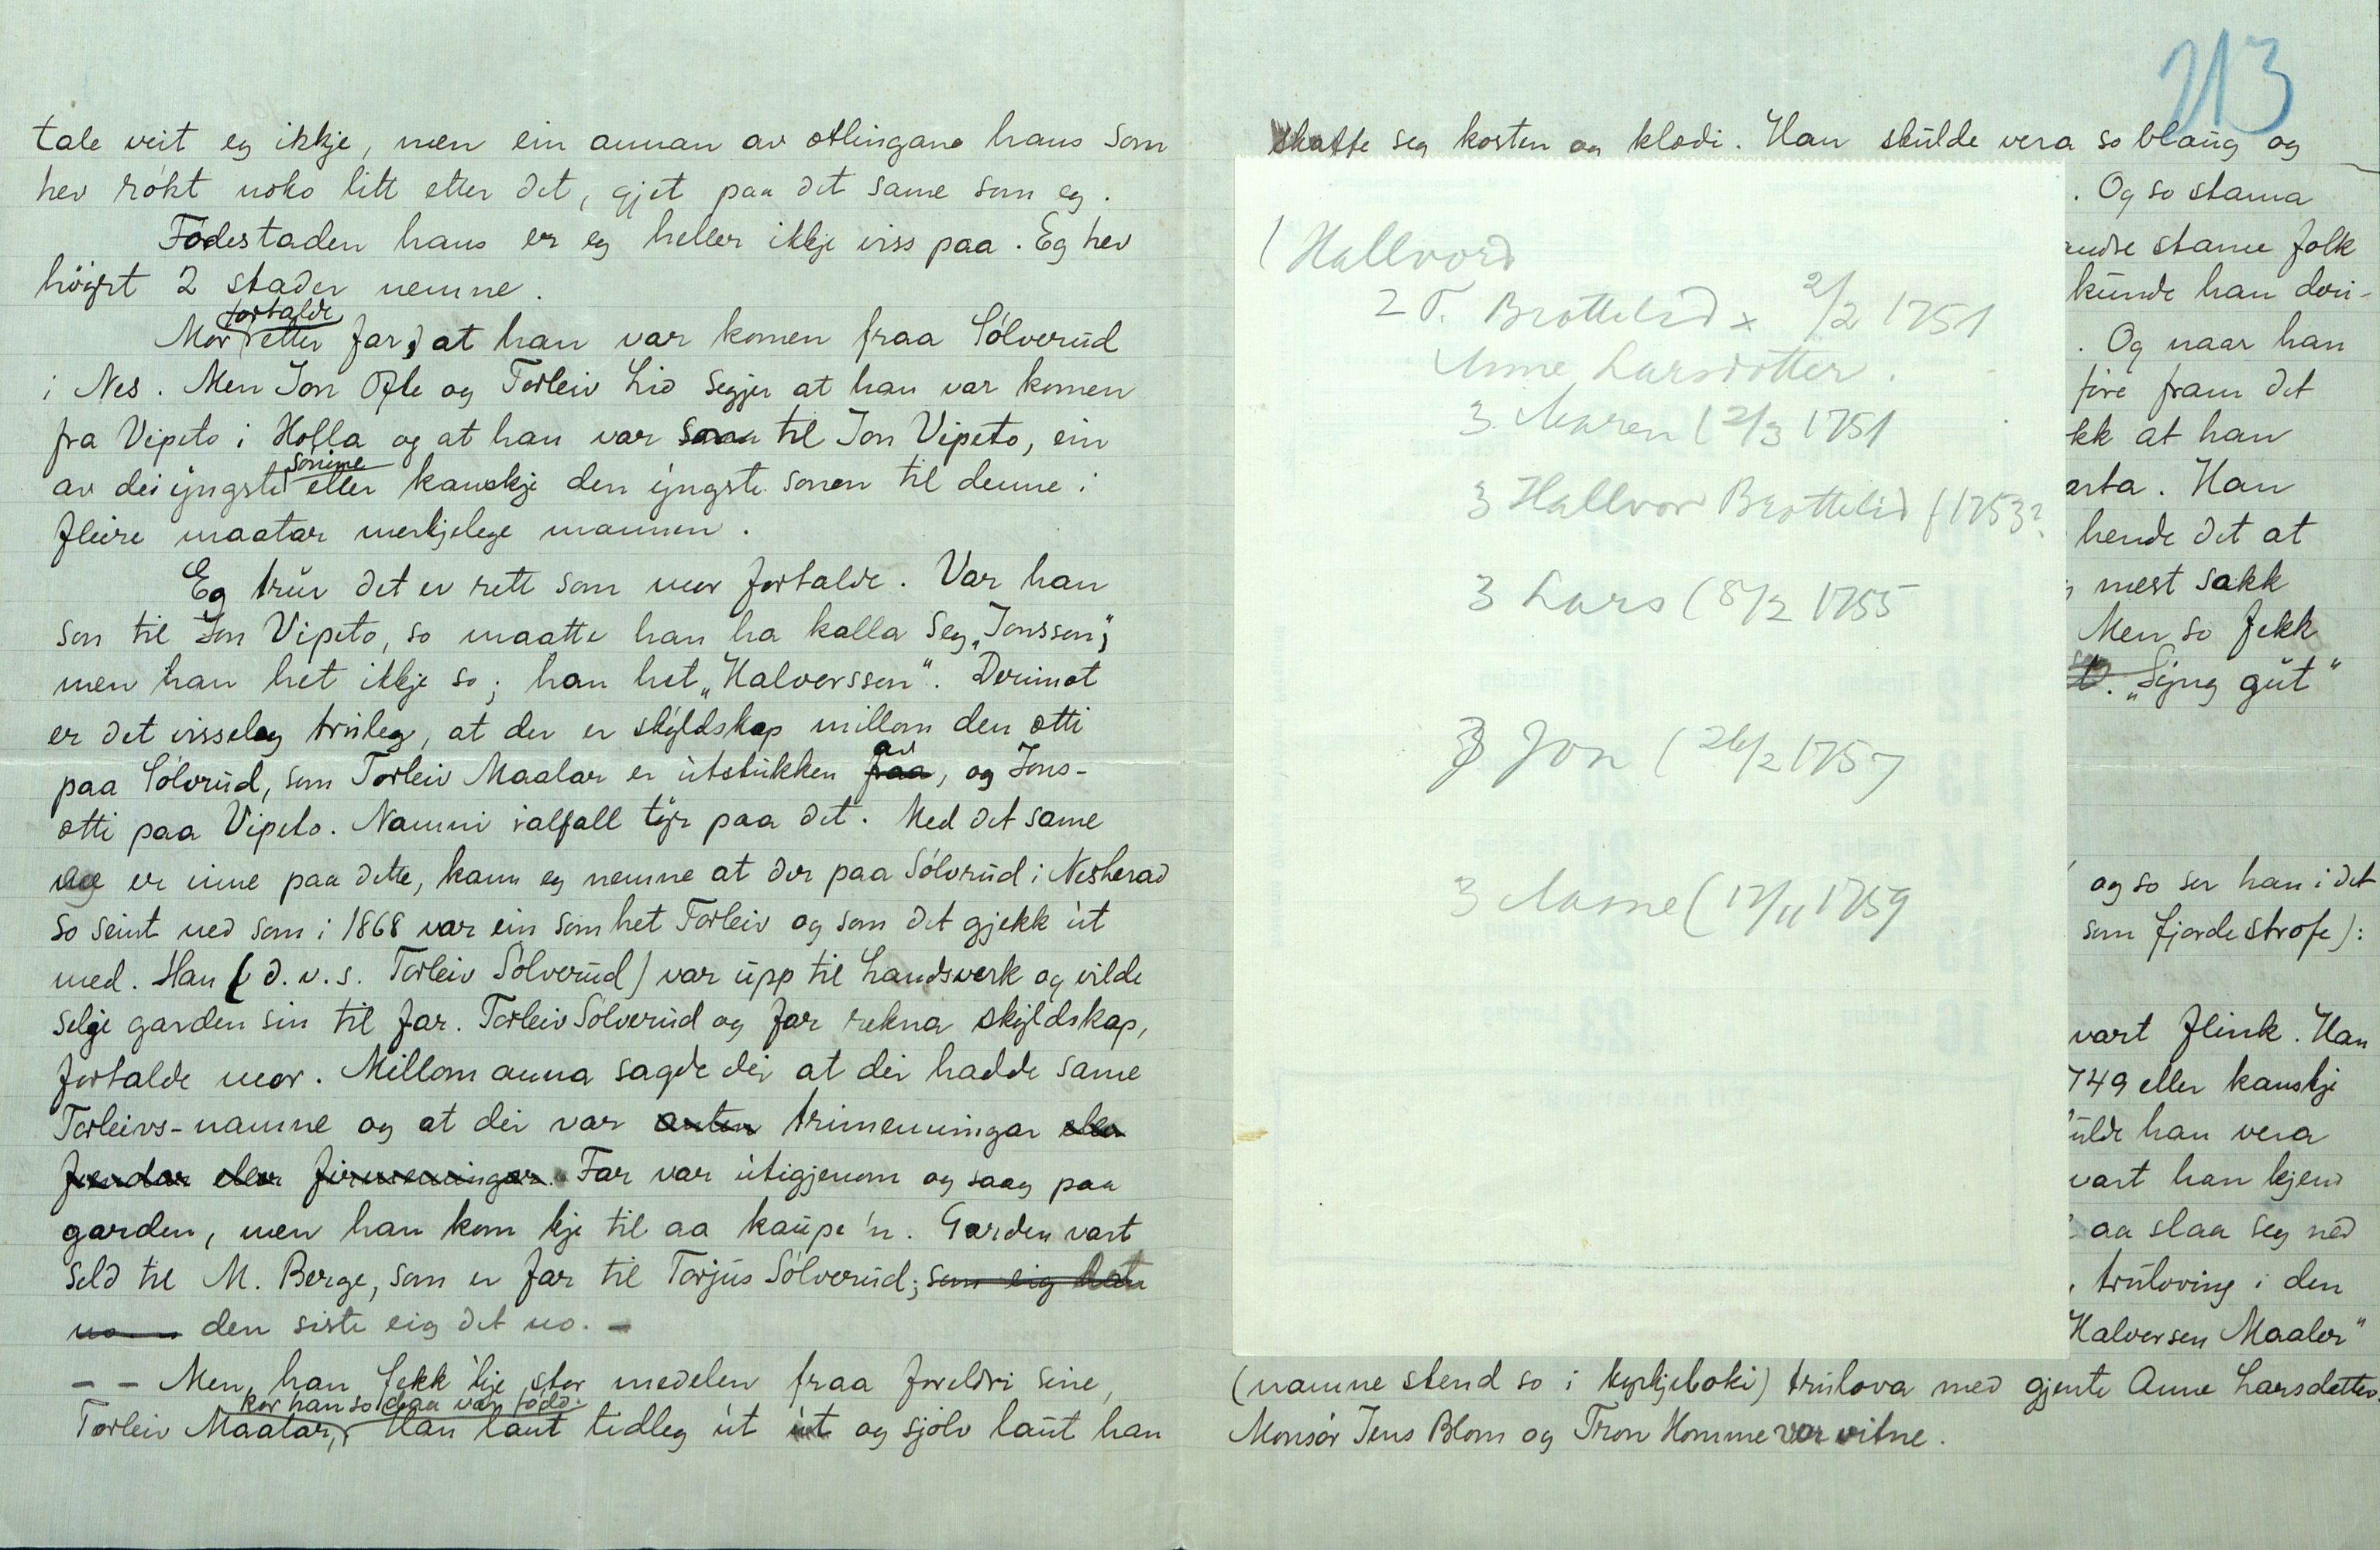 tale veit eg ikkje, men ein annan av ætlingane hans som
hev røkt noko litt etter det, gjet paa det same som eg.
Fødestaden hans er eg heller ikkje viss paa. Eg hev
høyrt 2 stader nemne.
fortalde
Mor etter far, at han var komen fraa Sólverud
i Nes. Men Jon Ofte og Torleiv Lid segjer at han var komen
fra Vipeto i Holla og at han var son til Jon Vipeto, ein
sonine
av dei yngste eller kanskje den yngste sonen til denne i
fleire maatar merkjelege mannen.
Eg trur det er rett som mor fortalde. Var han
son til Jon Vipeto, so maatte han ha kalla seg „Jonsson“;
men han het ikkje so; han het „Halversson“. Derimot
er det visseleg truleg, at der er skyldskap millom den ætti
av
paa Sólvrud, som Torleiv Maalar er utstukken fraa, og Jons-
ætti paa Vipeto. Namni ialfall tyr paa det. Med det same
eg er inne paa dette, kann eg nemne at der paa Sólvrud i Nesherad
so seint ned som i 1868 var ein som het Torleiv og som det gjekk ut
med. Han (d.v.s. Torleiv Sólverud) var upp til Landsverk og vilde
selje garden sin til far. Torleiv Sólverud og far rekna skyldskap,
fortalde mor. Millom anna sagde dei at dei hadde same
Torleivs-namne og at dei var anten trimenningar eller
frendar eller firmenningar. Far var utigjenom og saag paa
garden, men han kom kje til aa kaupe 'n. Garden vart
seld til M. Berge, som er far til Torjus Sólverud; som eig den
no den siste eig det no. –
– – Men han fekk 'kje stor medelen fraa foreldri sine,
kor han so enn var fødd.
Torleiv Maalar, Han laut tidleg ut ut og sjølv laut han
213
skaffe seg kosten og klædi. Han skulde vera so blaug og
. Og so stama
andre stame folk
kunde han deri-
. Og naar han
fire fram det
kk at han
arta. Han
hende det at
mest sakk
Men so fekk
„Syng gut“
og so ser han i det
som fjorde strofe):
vart flink. Han
749 eller kanskje
ulde han vera
vart han kjend
aa slaa seg ned
, truloving i den
Halversen Maaler“
(namne stend so i kyrkjeboki) trulova med gjente Anne Larsdatter.
Monsór Jens Blom og Tron Homme var vitne.
( Hallvord
2 T. Brøttelid x 2/2 1751
Anne Larsdotter.
3. Maren ( 2/3 1751
3 Hallvor Brøttelid ( 1753?
3 Lars ( 8/2 1755
3 Jon ( 26/2 1757
3 Aasne ( 17/11 1759